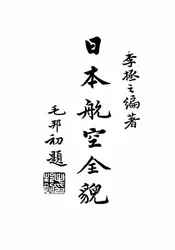 李拯之編著
日本航空全貌
毛邦初題